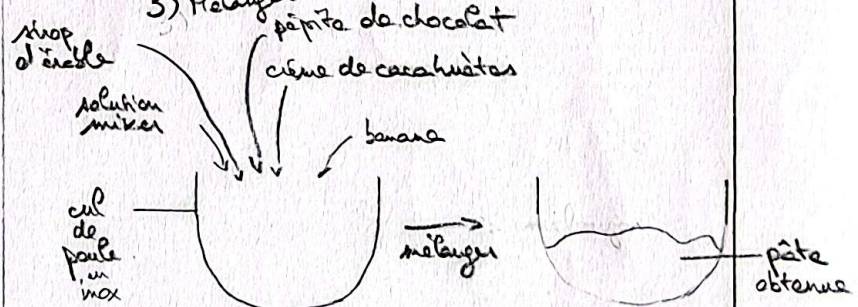 3) Mélange
pépite de chocolat
sirop
d'érable
crème de cacahuètes
solution
mixer
banane
cul
de
poule
en
inox
mélanger
pâte
obtenue